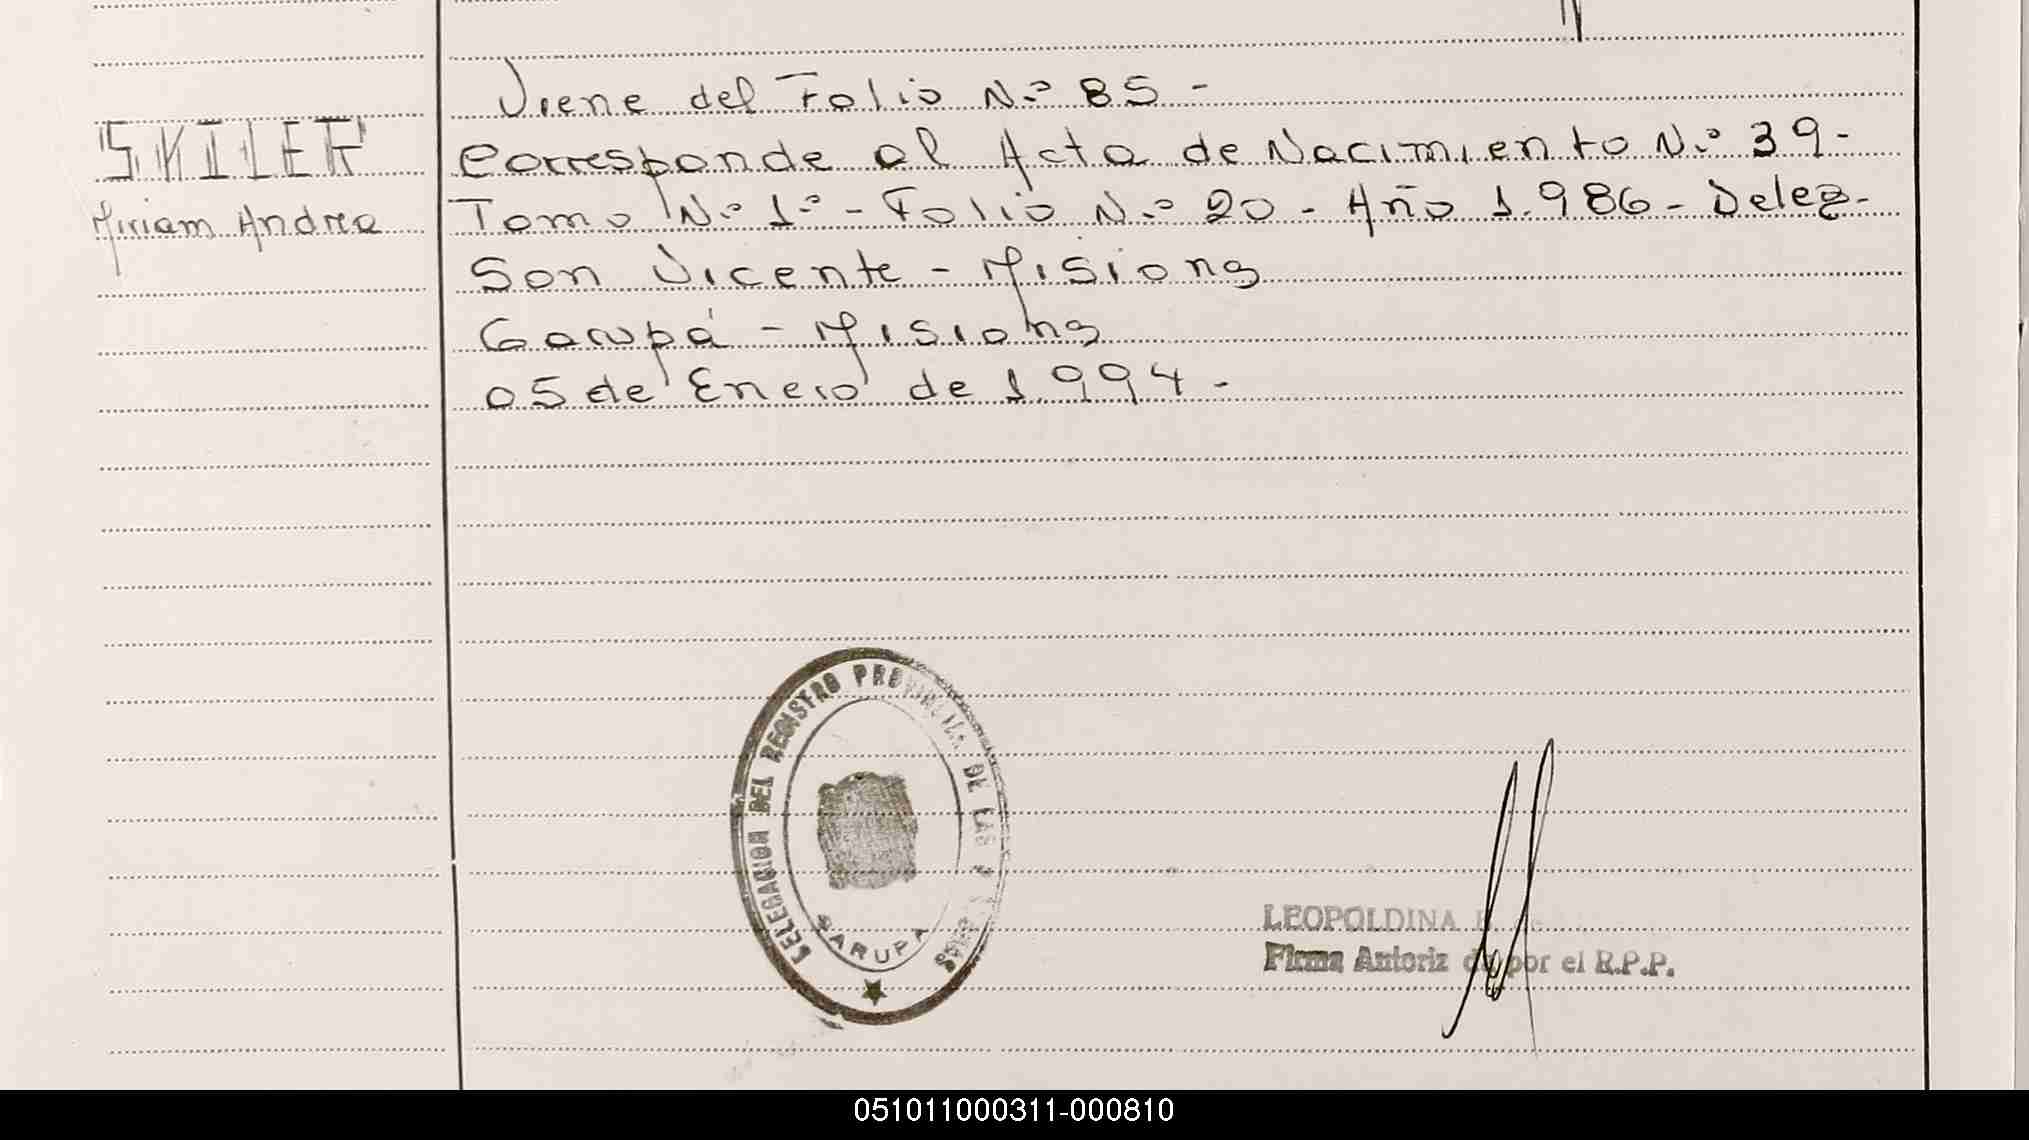 Viene del Folio N.° 85 -
SKILER
Corresponde al Acta de Nacimiento N.° 39-
Miriam Andrea
Tomo N.° 1° - Folio N.° 20 - Año 1.986 - Deleg-
San Vicente - Misiones
Garupá - Misiones
05 de Enero de 1.994 -
DELEGACION DEL REGISTRO PROVINCIAL DE LAS
GARUPA
LEOPOLDINA
Firma Autoriz da por el R.P.P.
051011000311-000810